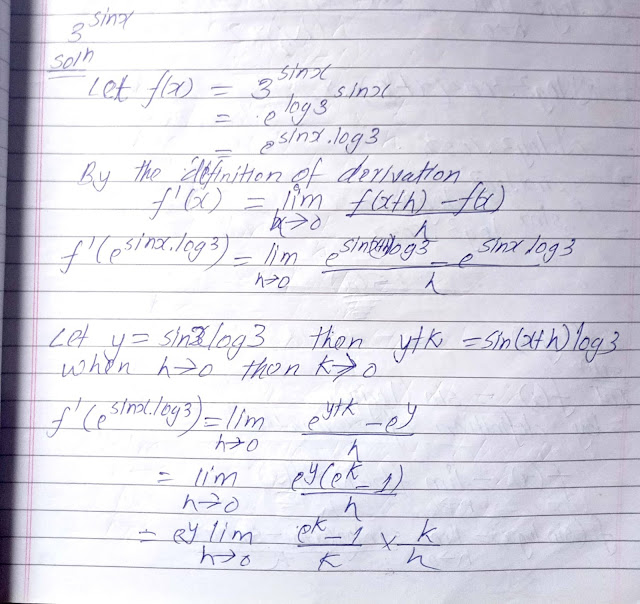 3^sinx
Soln
Let f(x) = 3^sinx
= e^log3^sinx
= e^sinx.log3
By the definition of derivation
f'(x) = lim x→0 f(x+h) - f(x) / h
f'(e^sinx.log3) = lim h→0 e^sin(x+h)log3 - e^sinx log3 / h
Let y = sinx log3 then y+k = sin(x+h) log3
when h→0 then k→0
f'(e^sinx.log3) = lim h→0 e^y+k - e^y / h
= lim h→0 e^y(e^k - 1) / h
= e^y lim h→0 e^k - 1 / k × k / h